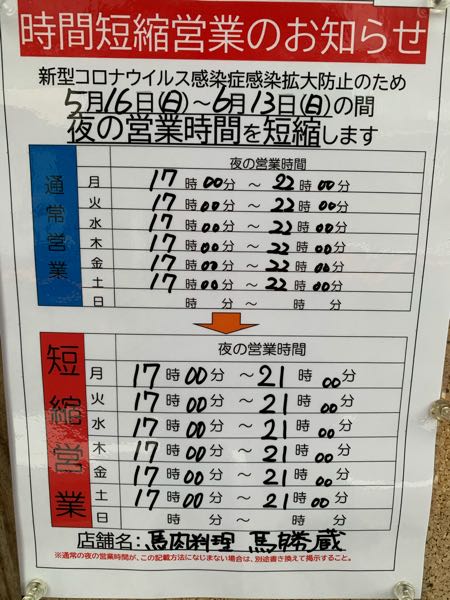 時間短縮営業のお知らせ
新型コロナウイルス感染症感染拡大防止のため
5月16日(日)～6月13日(日)の間
夜の営業時間を短縮します
通常営業
夜の営業時間
月 17時00分 ～ 22時00分
火 17時00分 ～ 22時00分
水 17時00分 ～ 22時00分
木 17時00分 ～ 22時00分
金 17時00分 ～ 22時00分
土 17時00分 ～ 22時00分
日 時 分 ～ 時 分
短縮営業
夜の営業時間
月 17時00分 ～21時00分
火 17時00分 ～21時00分
水 17時00分 ～21時00分
木 17時00分 ～21時00分
金 17時00分 ～21時00分
土 17時00分 ～21時00分
日 時 分 ～ 時 分
店舗名：馬肉料理 馬勝蔵
※通常の夜の営業時間が、この記載方法になじまない場合は、別途書き換えて掲示すること。